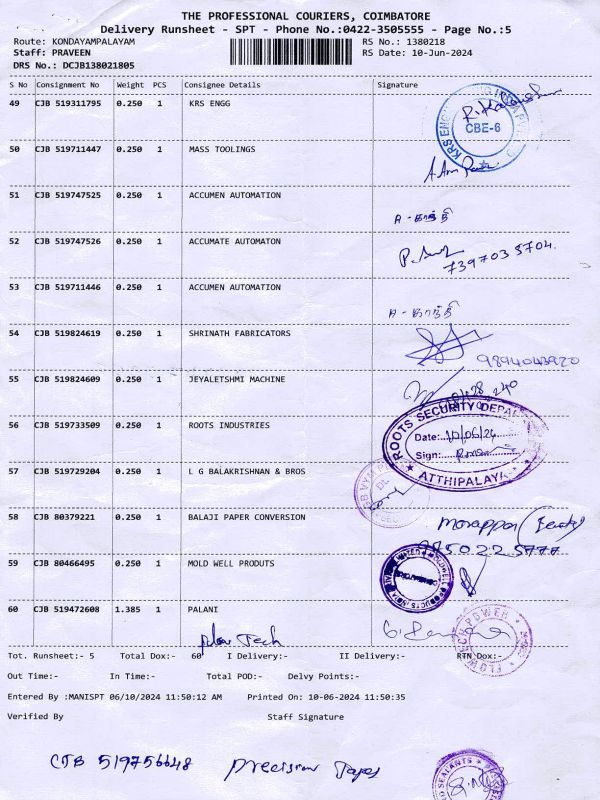 THE PROFESSIONAL COURIERS, COIMBATORE
Delivery Runsheet - SPT - Phone No.:0422-3505555 - Page No.:5
Route: KONDAYAMPALAYAM RS No.: 1380218
Staff: PRAVEEN RS Date: 10-Jun-2024
DRS No.: DCJB138021805
S No Consignment No Weight PCS Consignee Details Signature
49 CJB 519311795 0.250 1 KRS ENGG
CBE-6
50 CJB 519711447 0.250 1 MASS TOOLINGS
51 CJB 519747525 0.250 1 ACCUMEN AUTOMATION
52 CJB 519747526 0.250 1 ACCUMATE AUTOMATON
53 CJB 519711446 0.250 1 ACCUMEN AUTOMATION
54 CJB 519824619 0.250 1 SHRINATH FABRICATORS
9894043920
55 CJB 519824609 0.250 1 JEYALETSHMI MACHINE
56 CJB 519733509 0.250 1 ROOTS INDUSTRIES
ROOTS SECURITY
Date:10/06/24
Sign:
ATTHIPALAYA
57 CJB 519729204 0.250 1 L G BALAKRISHNAN & BROS
58 CJB 80379221 0.250 1 BALAJI PAPER CONVERSION
59 CJB 80466495 0.250 1 MOLD WELL PRODUTS
60 CJB 519472608 1.385 1 PALANI
Tot. Runsheet:- 5 Total Dox:- 60 I Delivery:- II Delivery:- RTN Dox:-
Out Time:- In Time:- Total POD:- Delvy Points:-
Entered By :MANISPT 06/10/2024 11:50:12 AM Printed On: 10-06-2024 11:50:35
Verified By Staff Signature
CJB 519756648 Precision Tapes